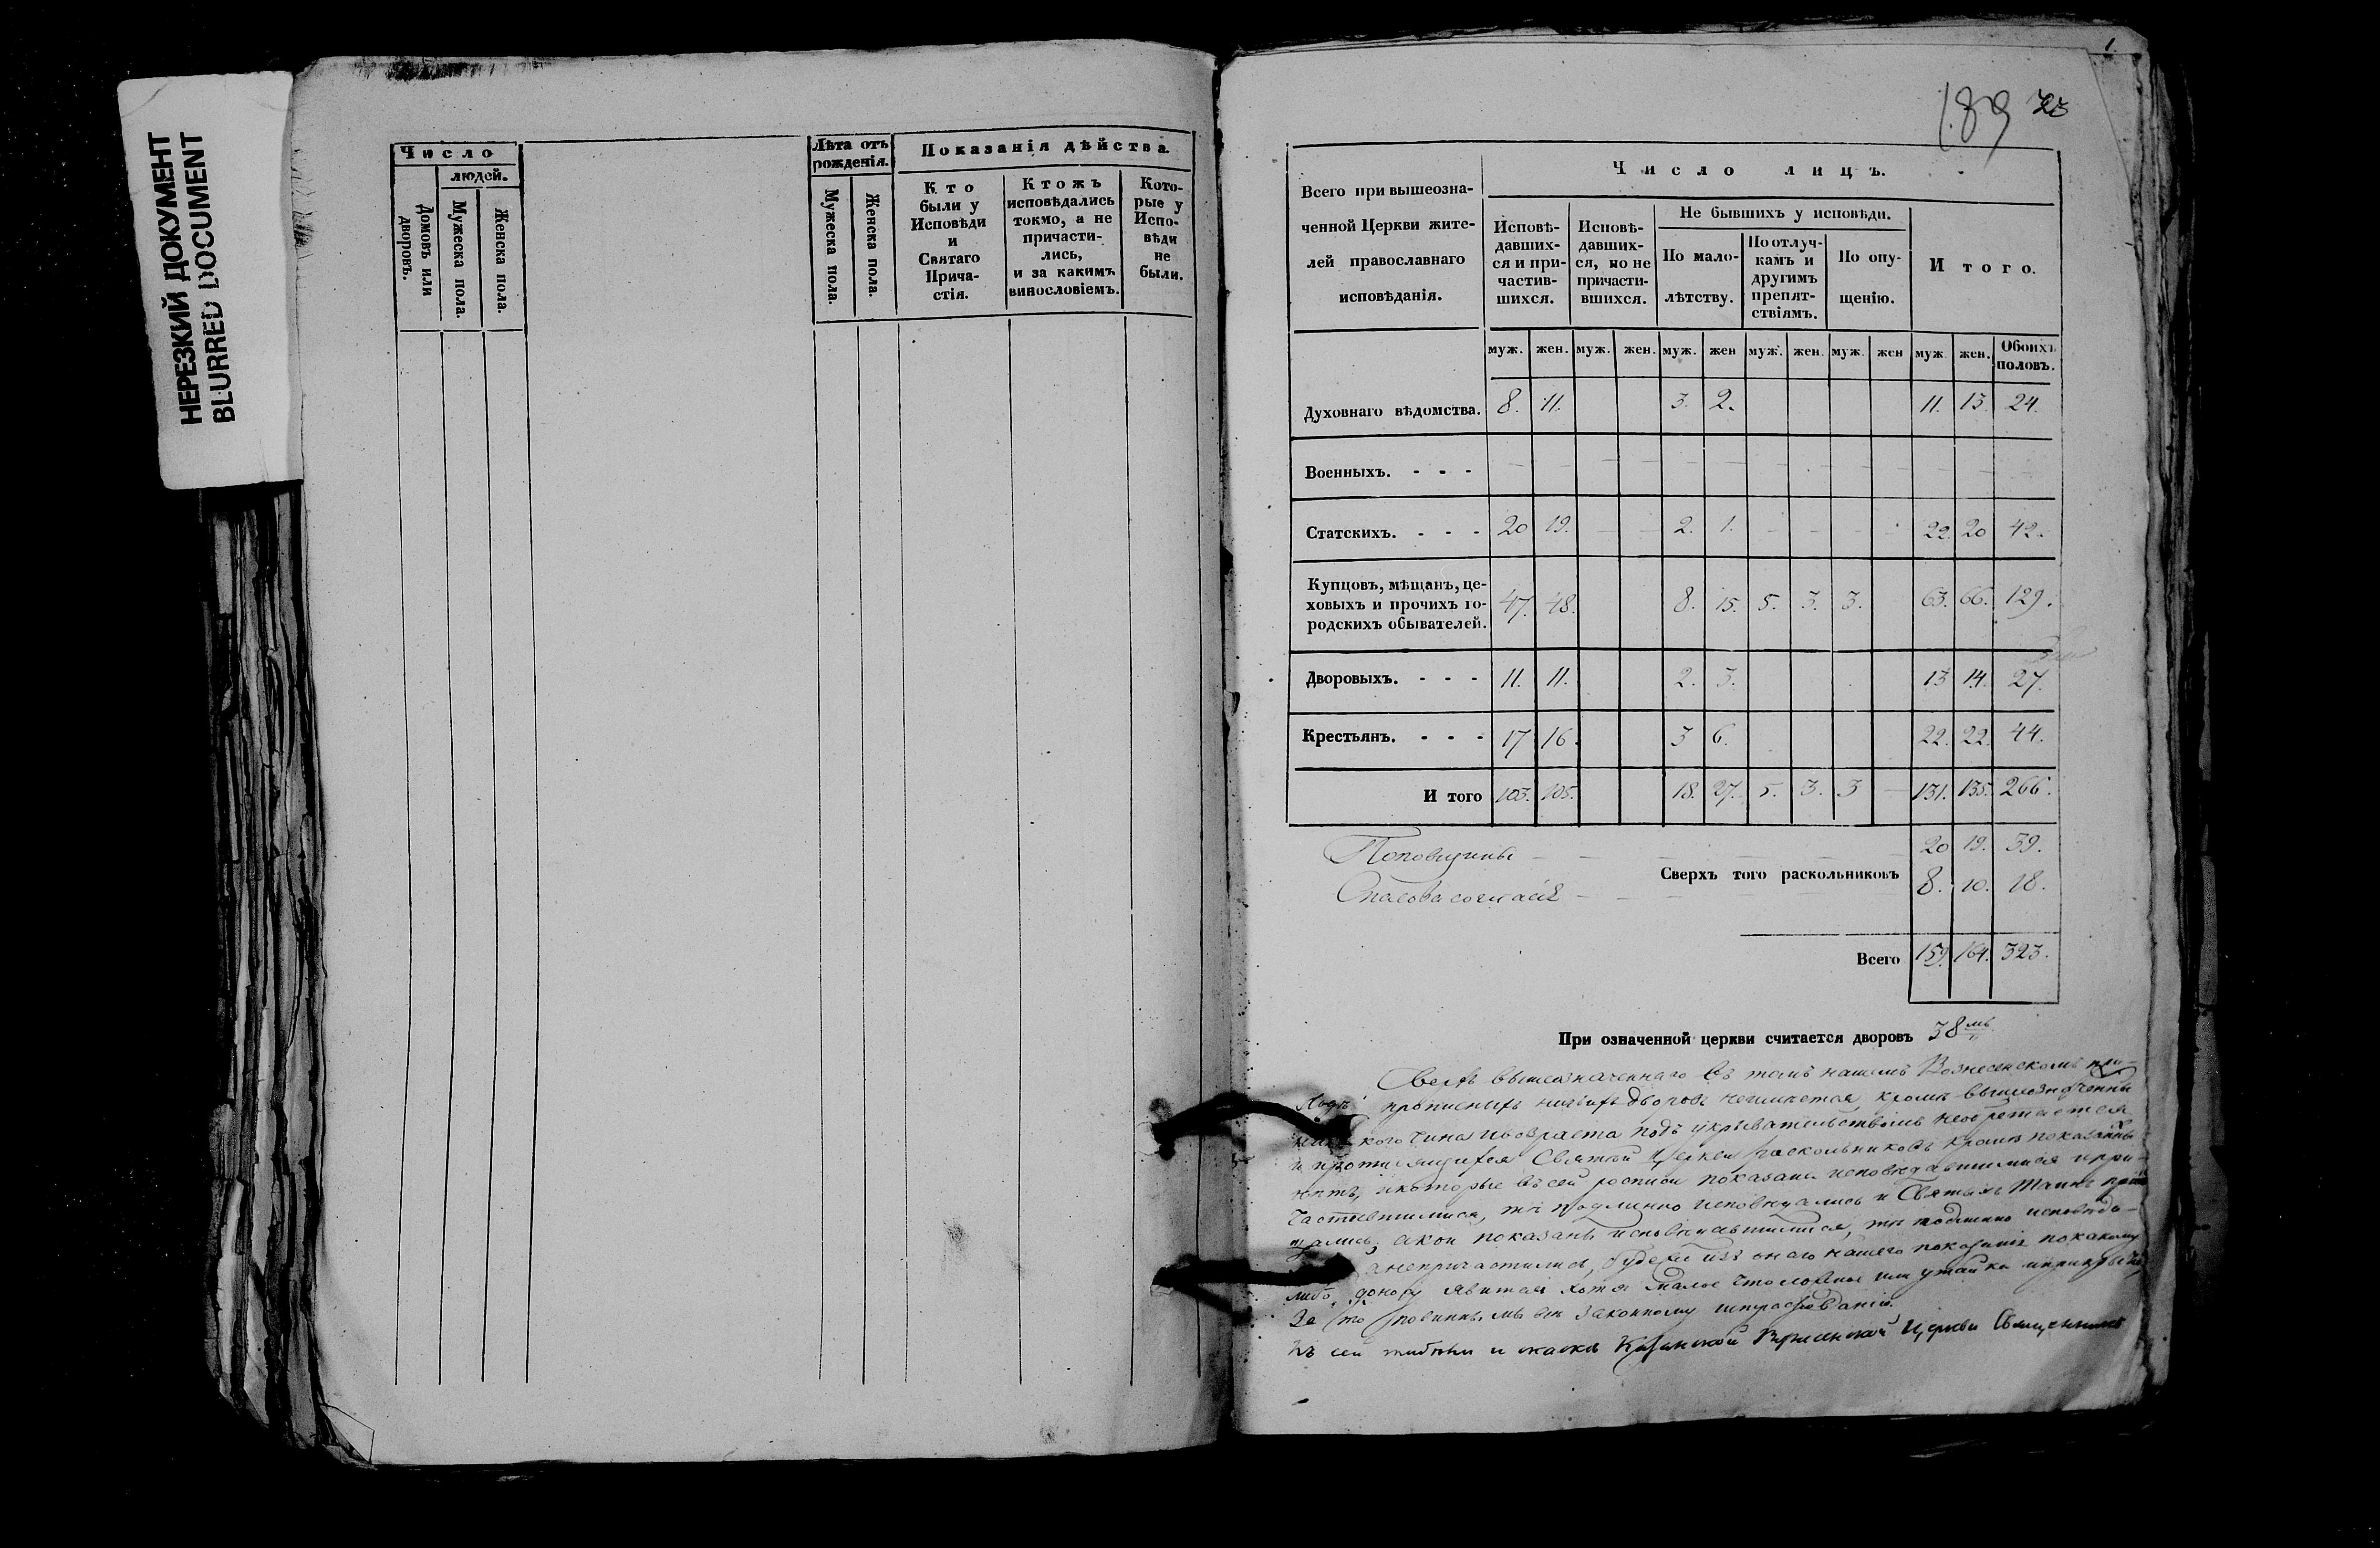 НЕРЕЗКИЙ ДОКУМЕНТ
BLURRED DOCUMENT
Число
людей.
Домовъ или дворовъ.
Мужеска пола.
Женска пола.
Лѣта отъ рожденія.
Мужеска пола.
Женска пола.
Показанія дѣйства.
Кто были у Исповѣди и Святаго Прича-стія.
Ктожъ исповѣдались токмо, а не причасти-лись, и за какимъ винословіемъ.
Кото-рые у Испо-вѣди не были.
1.
189 
Всего при вышеозна-
ченной Церкви жите-
лей православнаго
исповѣданія.
Число лицъ.
Исповѣ-давших-ся и при-частив-шихся.
Исповѣ-давших-ся, но не причасти-вшихся.
Не бывшихъ у исповѣди.
По мало-лѣтству.
По отлуч-камъ и другимъ препят-ствіямъ.
По опу-щенію.
Итого.
муж. жен. муж. жен. муж. жен муж. жен. муж. жен муж. жен. Обоихъ половъ.
Духовнаго вѣдомства. 8. 11. 3. 2. 11. 13. 24.
Военныхъ. - - - — — — — — — — — — — — — —
Статскихъ. - - - 20 19. — — 2. 1. — — — - 22. 20 42.
Купцовъ, мѣщанъ, це-
ховыхъ и прочихъ го-
родскихъ обывателей. 47. 48. 8. 15. 5. 3. 3. 63. 66. 129.
Дворовыхъ. - - - 11. 11. 2. 3. 13 14. 27.
Крестьянъ. - - - 17 16. 3 6. 22. 22. 44.
И того 103. 105. 18. 27. 5. 3. 3 — 131. 135. 266.
Поповщины — — — 20 19. 39.
Сверхъ того раскольниковъ
Спасова согласія — — — 8. 10. 18.
Всего 159. 164. 323.
При означенной церкви считается дворовъ 38мь
Сверхъ вышеозначеннаго въ томъ нашемъ Вознесенскомъ при-
ходѣ прописныхъ дворовъ кромѣ вышеозначенныхъ
чина и возраста подъ укрывательствомъ необретается
и Святой Церкви раскольниковъ кромѣ показанныхъ
нѣтъ, и которые въ сей росписи показаны исповѣдавшимися и при-
частившимися, тѣ подлинно исповѣдались и Святыхъ Таинъ
а кои показаны исповѣдавшимися, тѣ подлинно исповѣда-
а непричастились, будеже изъ онаго нашего показанія по какому
либо доносу явится хотя малое что ложное или утайка
За то повинны мы законному штрафованію.
Къ сей Казанской Вознесенской Церкви Священникъ